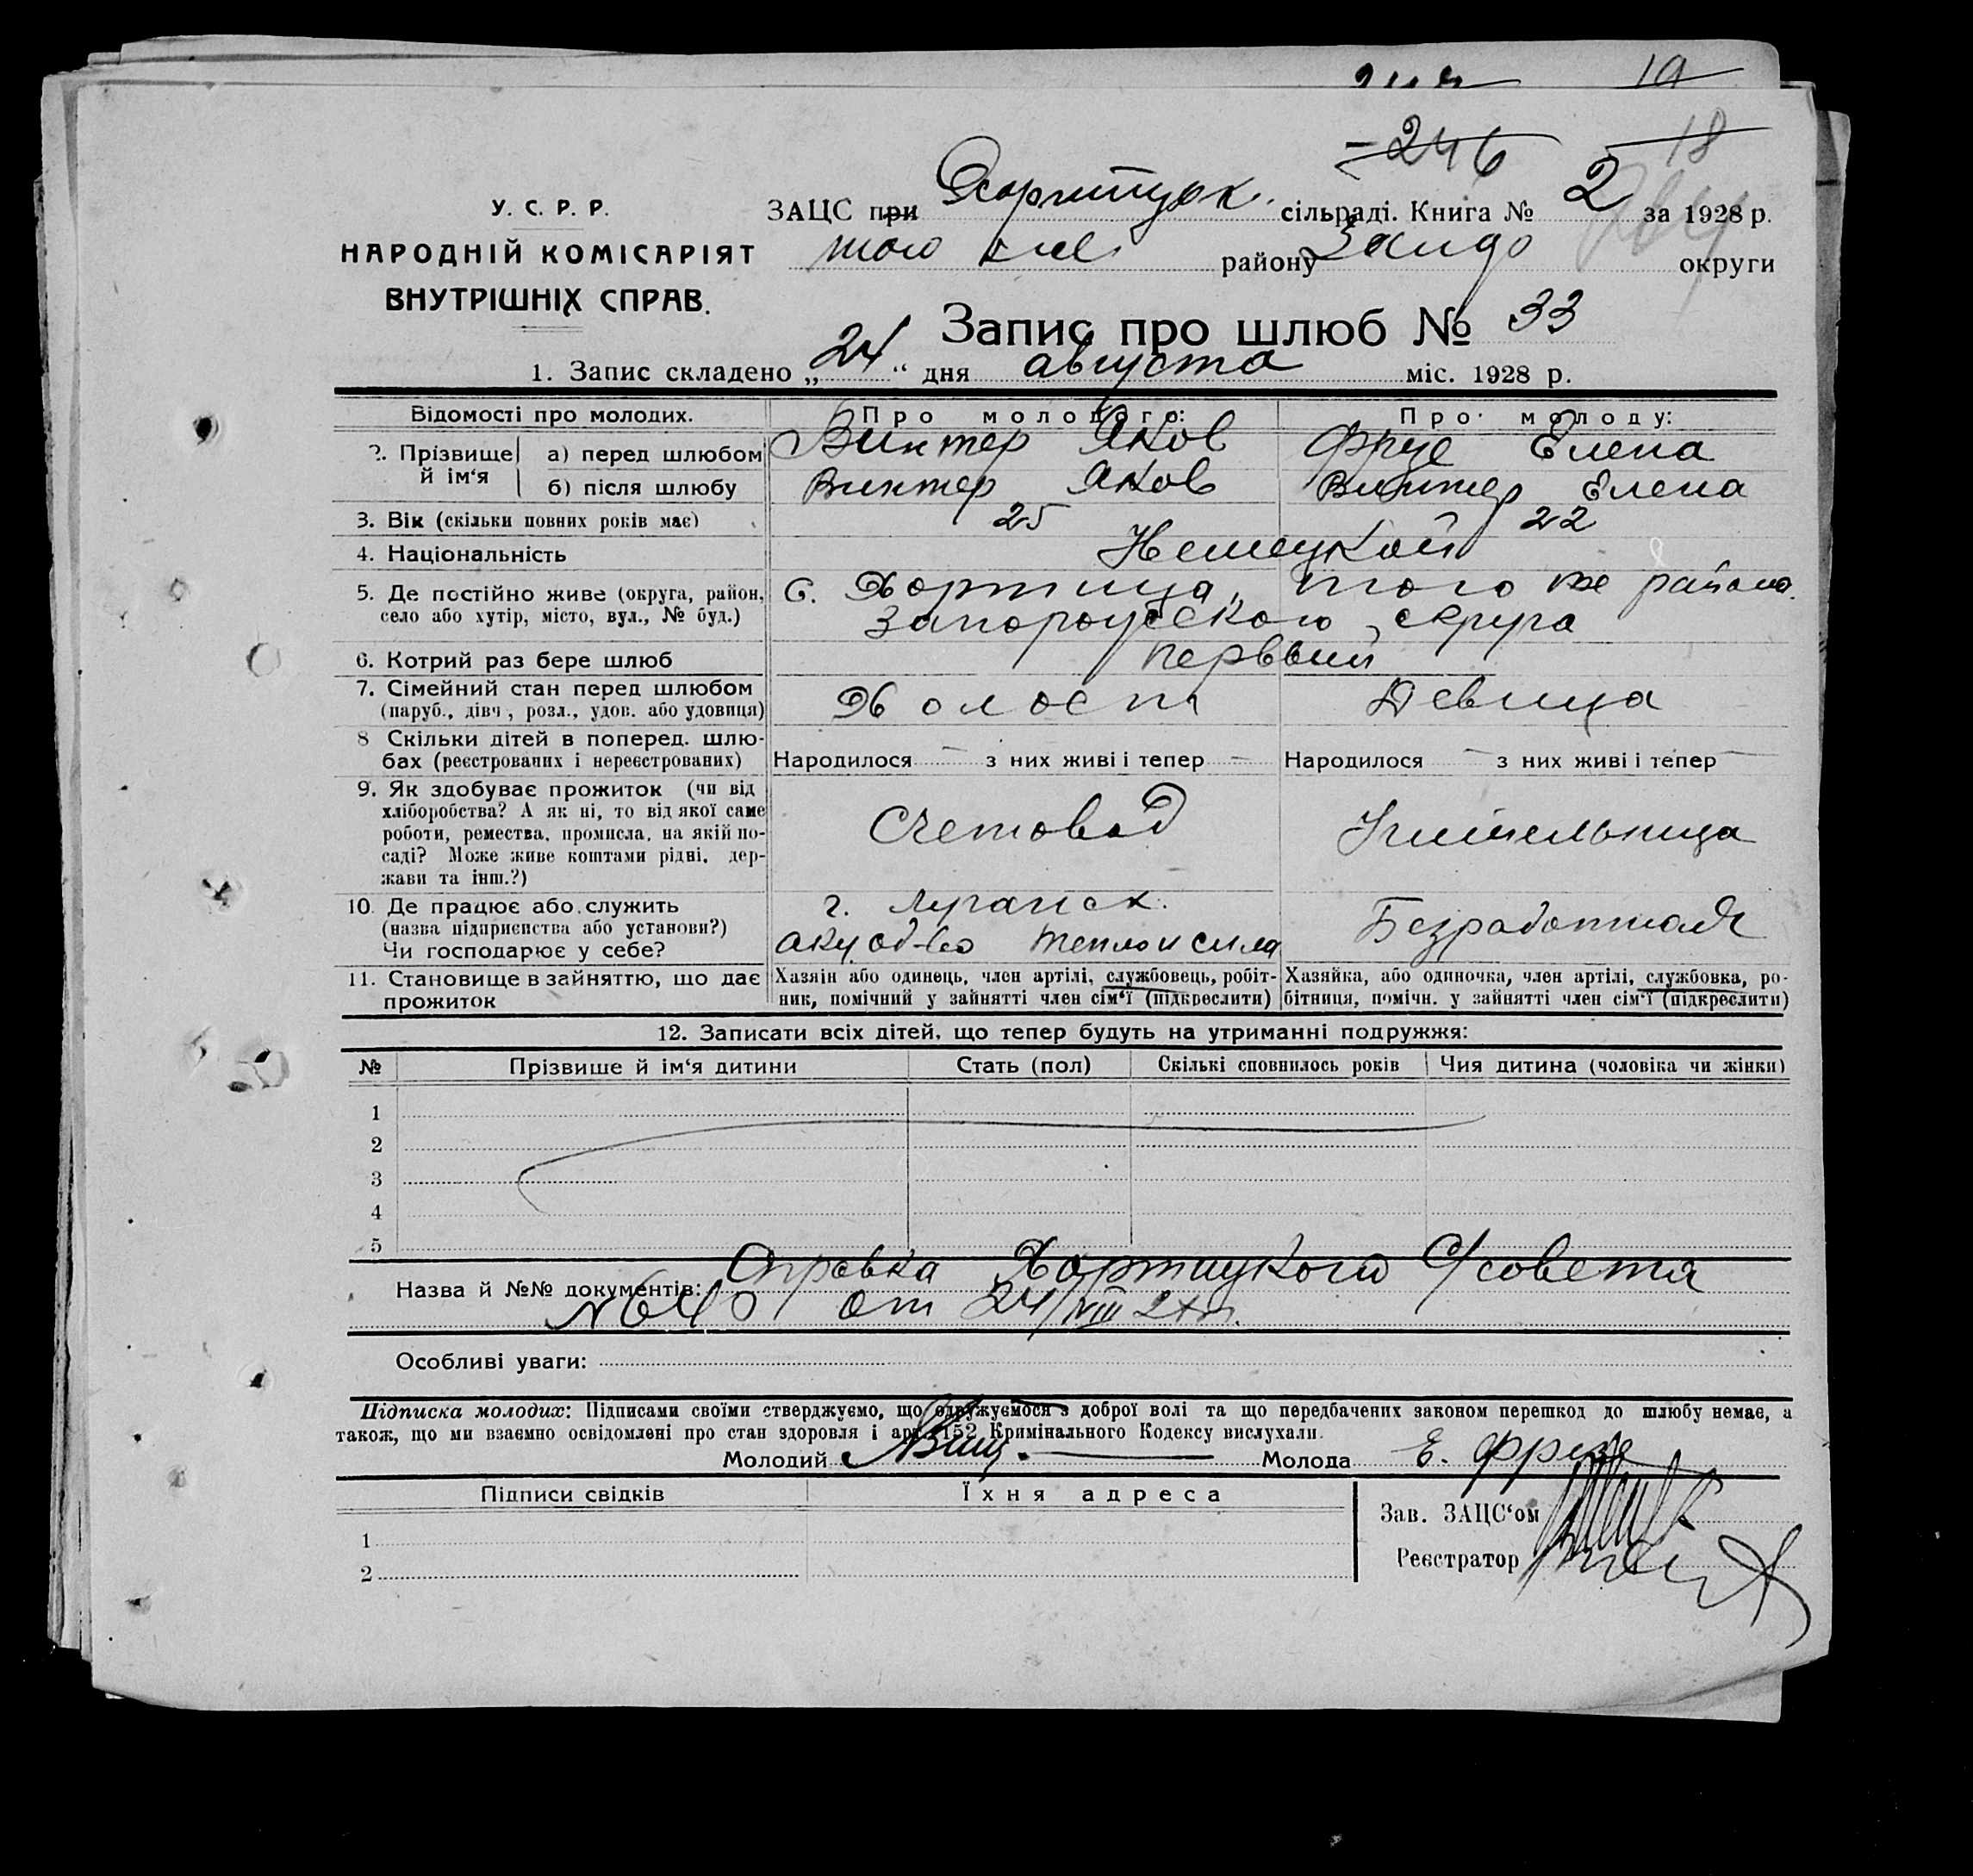 19
246
18
У. С. Р. Р.
НАРОДНІЙ КОМІСАРІЯТ
ВНУТРІШНІХ СПРАВ.
ЗАЦС при Хортицк. сільраді. Книга № 2 за 1928 р.
того же району Запор округи
Запис про шлюб № 33
1. Запис складено „24“ дня августа міс. 1928 р.
Відомості про молодих. Про молодого: Про молоду:
2. Прізвище й ім‘я
а) перед шлюбом Винтер Яков Фризе Елена
б) після шлюбу Винтер Яков Винтер Елена
3. Вік (скільки повних років має) 25 22
4. Національність Немецкой
5. Де постійно живе (округа, район, с. Хортица, того же района
село або хутір, місто, вул., № буд.) Запорожского округа
6. Котрий раз бере шлюб первый
7. Сімейний стан перед шлюбом Холост Девица
(паруб., дівч, розл., удов. або удовиця)
8 Скільки дітей в поперед. шлю-
бах (реєстрованих і нереєстрованих) Народилося — з них живі і тепер — Народилося — з них живі і тепер —
9. Як здобуває прожиток (чи від
хліборобства? А як ні, то від якої саме
роботи, ремества, промисла, на якій по- Счетовод Учительница
саді? Може живе коштами рідні, дер-
жави та інш.?)
10. Де працює або служить г. Луганск.
(назва підприєнства або установи?) Безработная
Чи господарює у себе? акц. об-во Тепло и сила
11. Становище в зайняттю, що дає Хазяін або одинець, член артілі, службовець, робіт- Хазяйка, або одиночка, член артілі, службовка, ро-
прожиток ник, помічний у зайнятті член сім‘ї (підкреслити) бітниця, помічн. у зайнятті член сім‘ї (підкреслити)
12. Записати всіх дітей, що тепер будуть на утриманні подружжя:
№ Прізвише й ім‘я дитини Стать (пол) Скількі сповнилось років Чия дитина (чоловіка чи жінки)
1
2
3
4
5
Назва й №№ документів: Справка Хортицкого С/совета
№ 640 от 24/VIII
Особливі уваги:
Підписка молодих: Підписами своїми стверджуємо, що одружуємося з доброї волі та що передбачених законом перешкод до шлюбу немає, а
також, що ми взаємно освідомлені про стан здоровля і арт. 152 Кримінального Кодексу вислухали.
Молодий Молода Е. Фризе
Підписи свідків Їхня адреса
Зав. ЗАЦС‘ом
1
Реєстратор
2